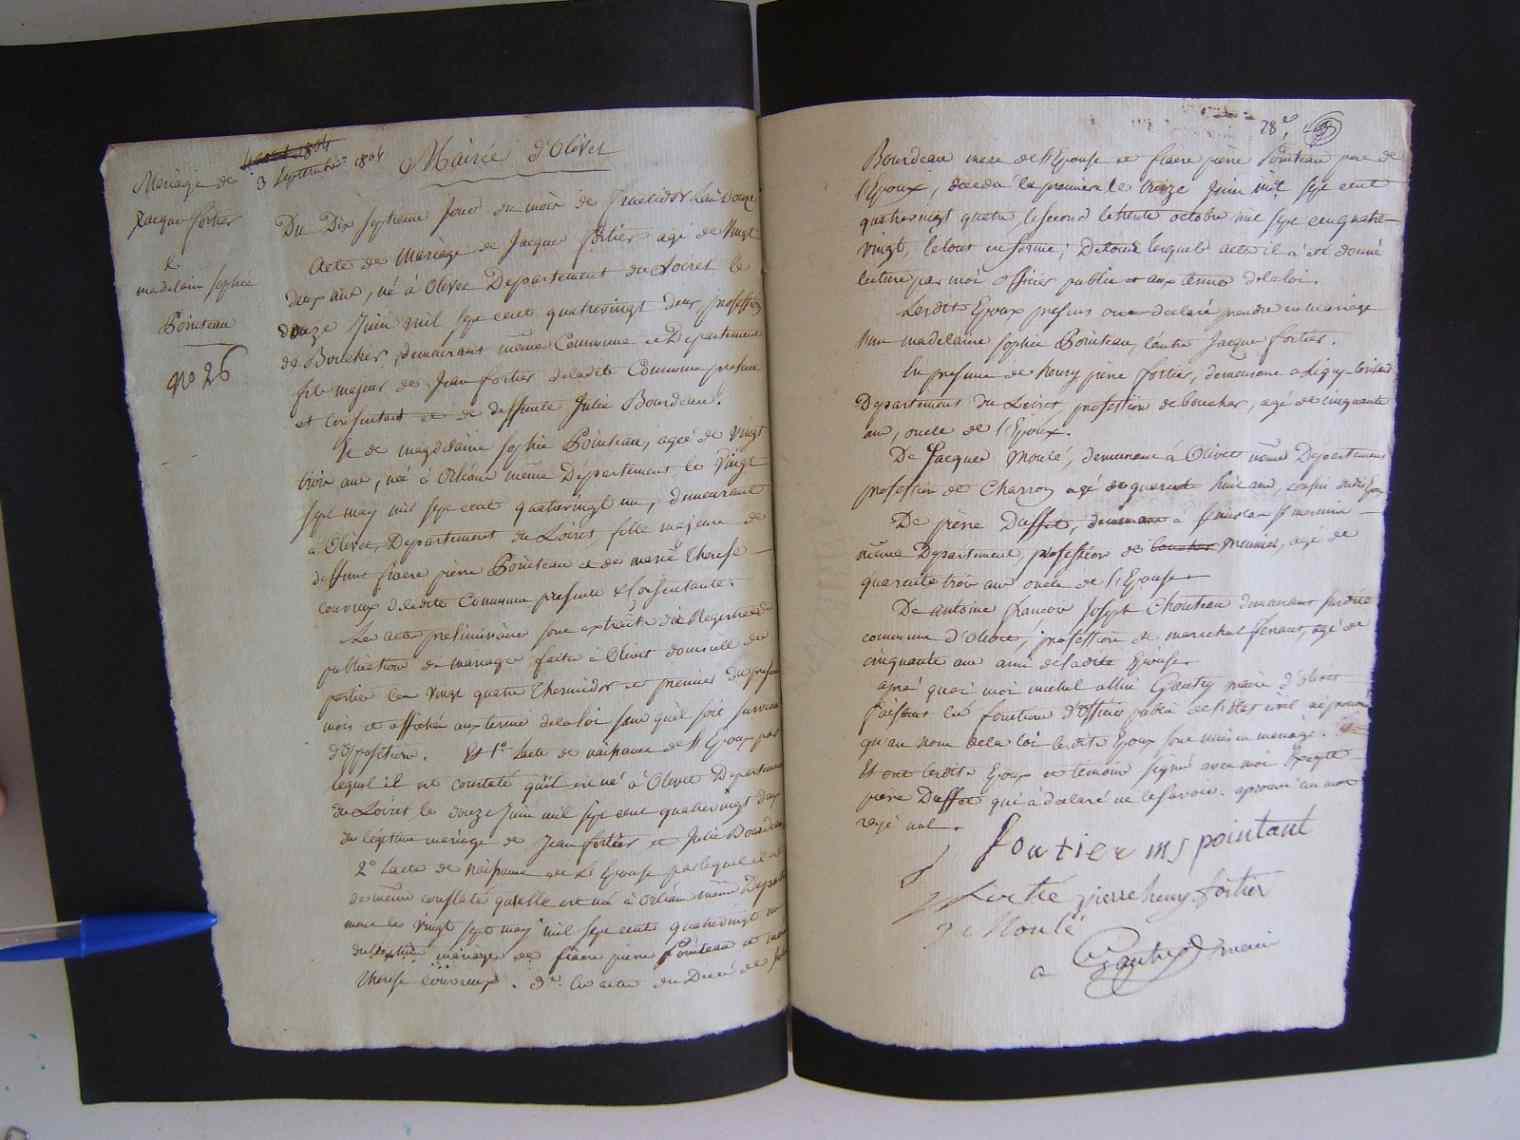 Mairie d'Olivet
Mariage de 3 Septembre 1804
Jacque fortier
&
madelaine sophie
Pointeau
No 26
Du Dix septieme Jour du mois de fructidor L'an Douze
Acte de Mariage de Jacque fortier agé de Vingt
deux ans, né à Olivet Departement du Loiret le
douze Juin mil sept cent quatrevingt deux, profession
de Boucher, demeurant même Commune et Departement
fils majeur de Jean fortier de ladite Commune present
et Consentant et de deffunte Julie Bourdeau.
Et de magdelaine sophie Pointeau, agée de vingt
trois ans, née à Orléans même Departement le Vingt
sept may mil sept cent quatrevingt un, demeurant
à Olivet, Departement du Loiret, fille majeure de
deffunt fiacre pierre Pointeau et de marie Therese
Couvreux de ladite Commune presente & Consentante.
Les actes preliminaires sont extraits des Registres de
publication de mariage faite à Olivet domicile des
parties les vingt quatre Thermidor et premier du present
mois et affichée aux termes de la loi sans qu'il soit survenu
d'opposition. Et 1o. L'acte de naissance de l'Epoux par
lequel il est constaté qu'il est né à Olivet Departement
du Loiret le douze Juin mil sept cent quatrevingt deux
du légitime mariage de Jean fortier et Julie Bourdeau
2o L'acte de naissance de l'Epouse par lequel il est
de même constaté qu'elle est née à Orléans même Departe
ment le vingt sept may mil sept cent quatrevingt un
du légitime mariage de fiacre pierre Pointeau et marie
therese Couvreux. 3o. les actes du Decès de Julie
78e,
Bourdeau mere de l'Epouse et fiacre pierre Pointeau pere de
l'Epoux, decedé la premiere le treize Juin mil sept cent
quatrevingt quatre, le second le trente octobre mil sept cent quatre
vingt, le tout en forme; De tous lesquels actes il à été donné
lecture par moi officier public et aux termes de la loi.
Lesdits Epoux presens ont declaré prendre en mariage
l'un madelaine sophie Pointeau, l'autre Jacque fortier.
En presence de henry pierre fortier, demeurant a
Departement du Loiret, profession de boucher, agé de cinquante
ans, oncle de l'Epoux.
De Jacques Moulé, demeurant à Olivet même Departement
profession de Charron agé de quarente huit ans, cousin dudit Epoux
De pierre Duffot, demeurant a
même Departement, profession de boucher meunier, agé de
quarente trois ans oncle de l'Epouse.
De antoine francois Joseph Chouteau demeurant susdite
commune d'Olivet, profession de marechal ferrant, agé de
cinquante ans ami de ladite Epouse.
après quoi moi michel Gautry maire d'olivet
faisant les fonctions d'officier public de l'état civil ai prononcé
qu'au nom de la loi lesdits Epoux sont unis en mariage.
Et ont lesdits Epoux et temoins signé avec moi Excepté
pierre Duffot qui a declaré ne le savoir. approuvé un mot
rayé nul.
fortier ms pointaut
pierre henry fortier
J Moulé
Gautry maire